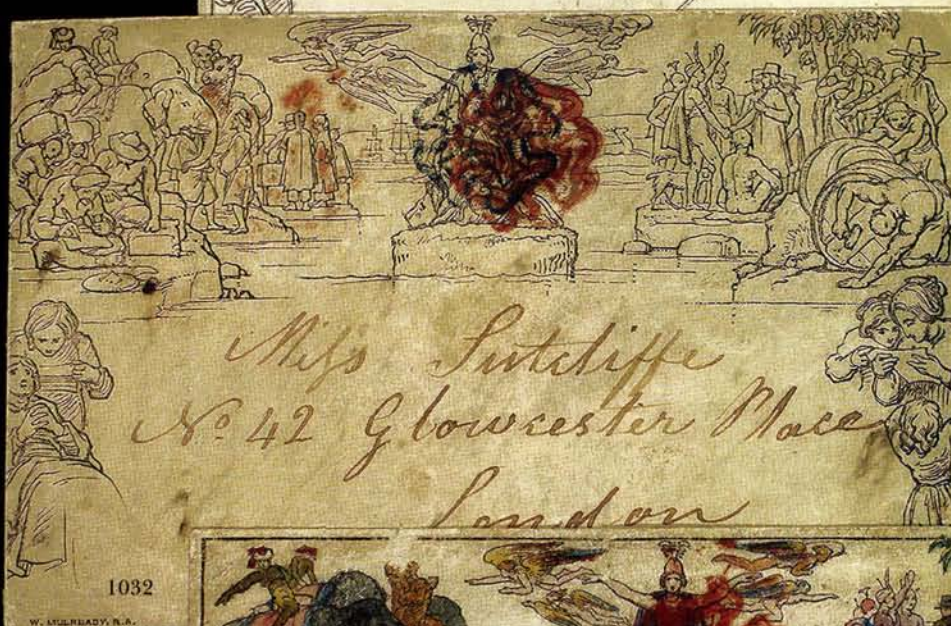 Miſs Sutcliffe
No. 42 Glowcester Place
London
1032
W. MULREADY, R.A.